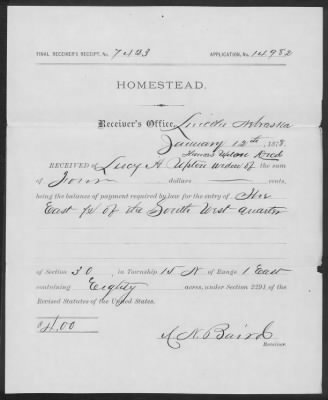 FINAL RECEIVER'S RECEIPT, No. 7423
APPLICATION, No. 14982
HOMESTEAD.
Receiver's Office, Lincoln Nebraska
January 12th, 1878.
Upton Decd
RECEIVED of Lucy H. Upton widow of the sum
of Four dollars cents,
being the balance of payment required by law for the entry of the
East ½ of the South West quarter
of Section 30 in Township 15 N of Range 1 East
containing Eighty acres, under Section 2291 of the
Revised Statutes of the United States.
$4.00
N. Baird
Receiver.